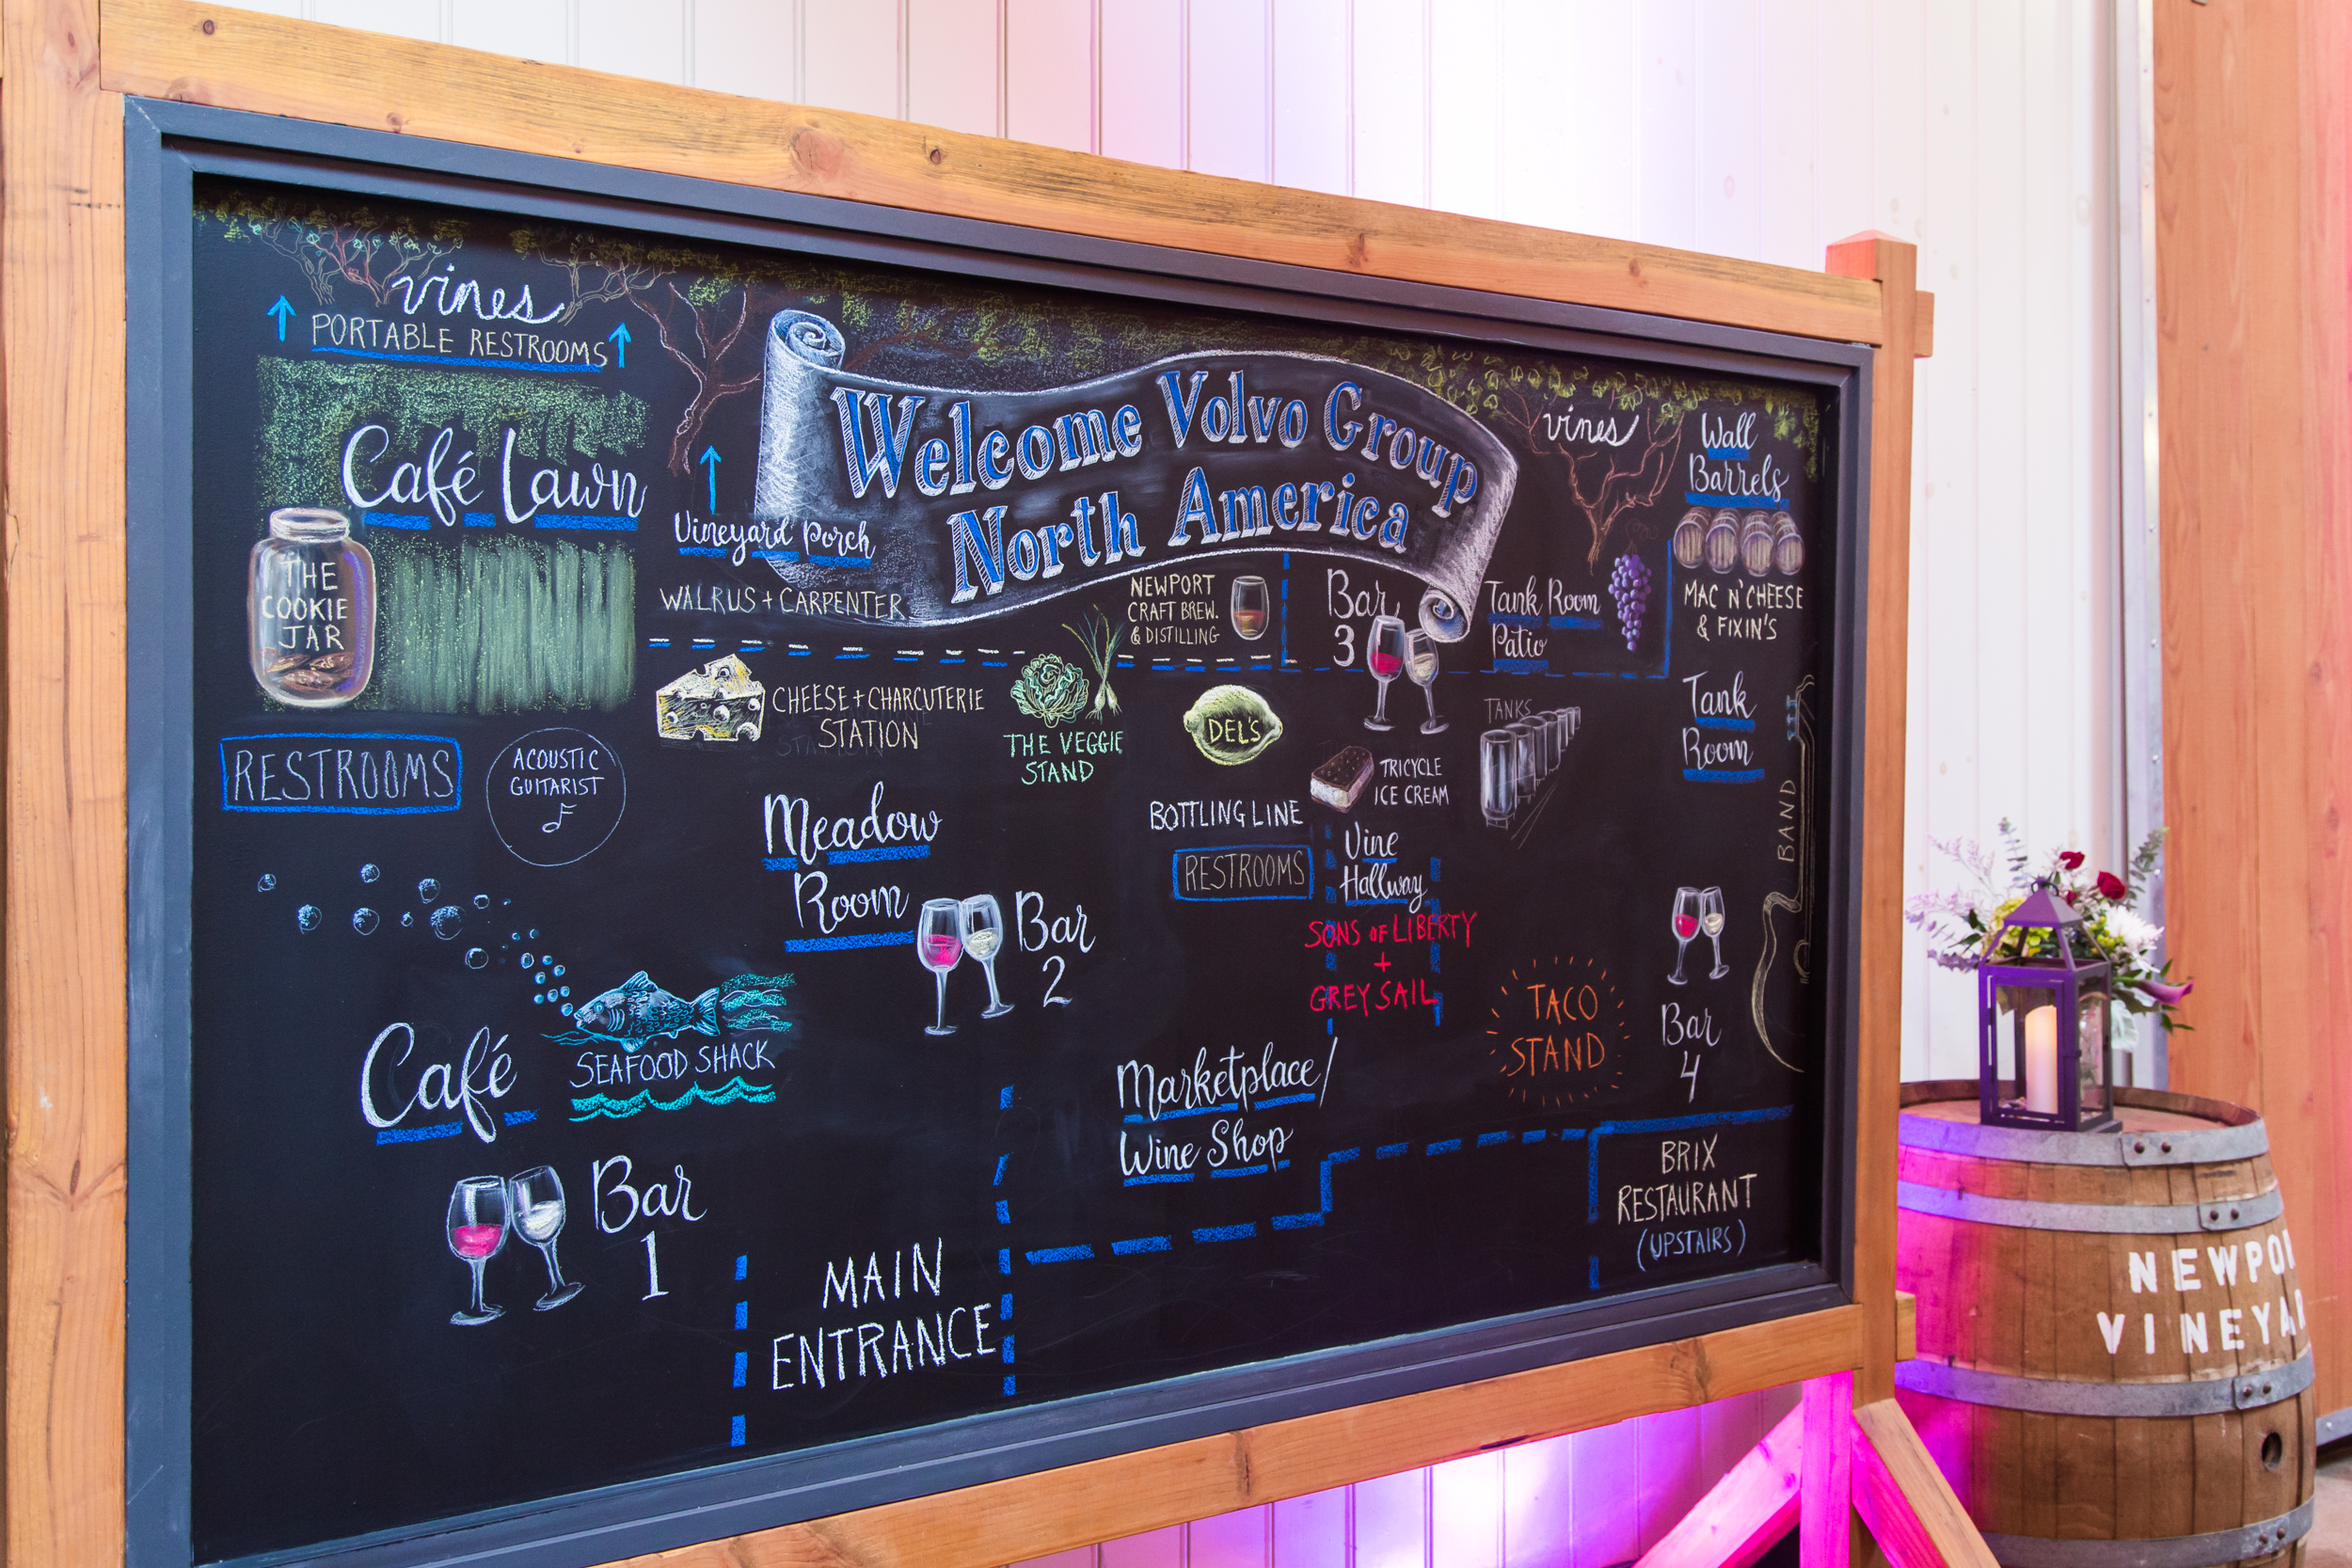 vines
PORTABLE RESTROOMS
Café Lawn
THE
COOKIE
JAR
Welcome Volvo Group
North America
Vineyard Porch
WALRUS + CARPENTER
NEWPORT
CRAFT BREW.
& DISTILLING
Bar
3
vines
Tank Room
Patio
Wall
Barrels
MAC N' CHEESE
& FIXIN'S
RESTROOMS
ACOUSTIC
GUITARIST
CHEESE + CHARCUTERIE
STATION
THE VEGGIE
STAND
DEL'S
TRICYCLE
ICE CREAM
TANKS
Tank
Room
BAND
Meadow
Room
Bar
2
BOTTLING LINE
RESTROOMS
Vine
Hallway
SONS OF LIBERTY
+
GREY SAIL
TACO
STAND
Bar
4
Café
SEAFOOD SHACK
Bar
1
Marketplace/
Wine Shop
MAIN
ENTRANCE
BRIX
RESTAURANT
(UPSTAIRS)
NEWPO
VINEYA